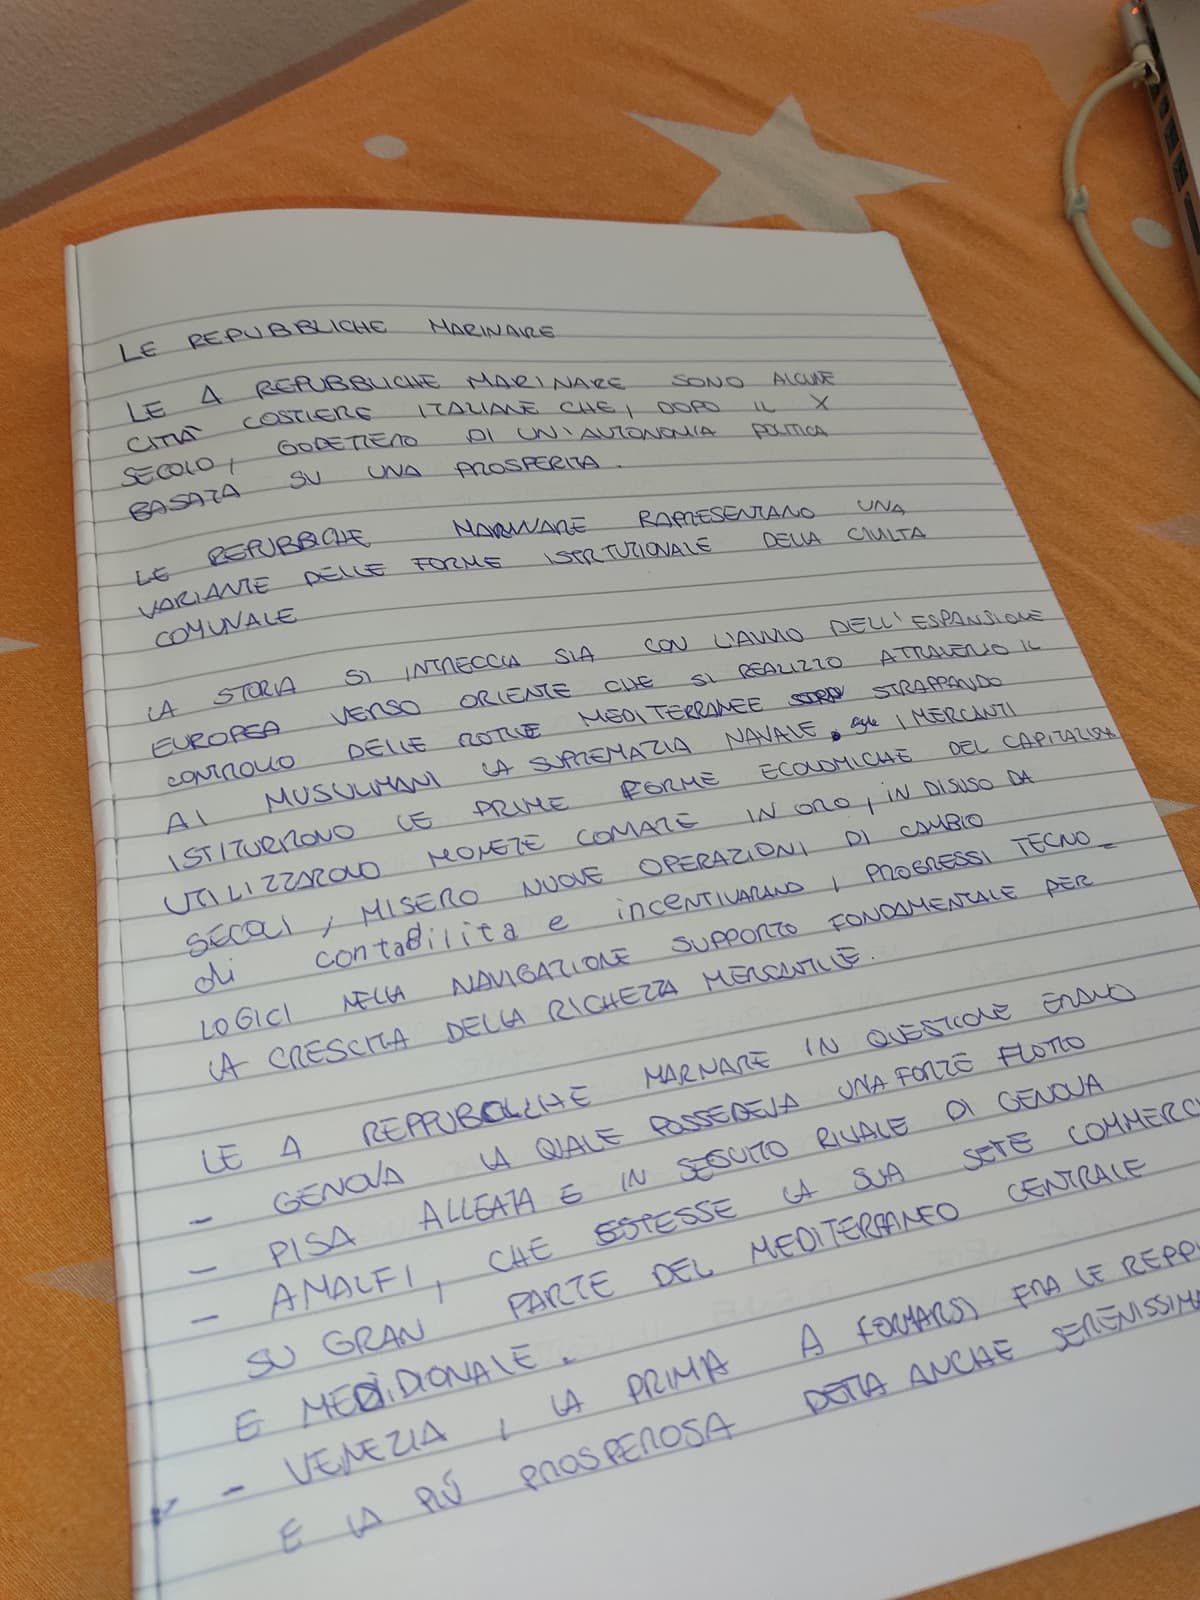 LE REPUBBLICHE MARINARE
LE 4 REPUBBLICHE MARINARE SONO ALCUNE
CITTÀ COSTIERE ITALIANE CHE, DOPO IL X
SECOLO, GODETTERO DI UN'AUTONOMIA POLITICA
BASATA SU UNA PROSPERITA.
LE REPUBBLICHE MARINARE RAPPRESENTANO UNA
VARIANTE DELLE FORME ISTITUZIONALE DELLA CIVILTA
COMUNALE
LA STORIA SI INTRECCIA SIA CON L'AVVIO DELL'ESPANSIONE
EUROPEA VERSO ORIENTE CHE SI REALIZZO ATTRAVERSO IL
CONTROLLO DELLE ROTTE MEDITERRANEE STRAPPANDO
AI MUSULMANI LA SUPREMAZIA NAVALE. I MERCANTI
ISTITUIRONO LE PRIME FORME ECONOMICHE DEL CAPITALISMO
UTILIZZAROLO MONETE COMATE IN ORO, IN DISUSO DA
SECOLI, MISERO NUOVE OPERAZIONI DI CAMBIO
di contabilita e incentivarano i PROGRESSI TECNO_
LOGICI NELLA NAVIGAZIONE SUPPORTO FONDAMENTALE PER
LA CRESCITA DELLA RICHEZZA MERCANTILE.
LE 4 REPPUBLLICHE MARNARE IN QUESTIONE ERANO
- GENOVA LA QUALE POSSEDEVA UNA FORTE FLOTTO
- PISA ALLEATA E IN SEGUITO RIVALE DI GENOVA
- AMALFI, CHE ESTESSE LA SUA SETE COMMERCI
SU GRAN PARTE DEL MEDITERRANEO CENTRALE
E MERIDIONALE.
- VENEZIA, LA PRIMA A FORMARSI FRA LE REPPU
E LA PIÚ PROSPEROSA DETTA ANCHE SERENISSIMA